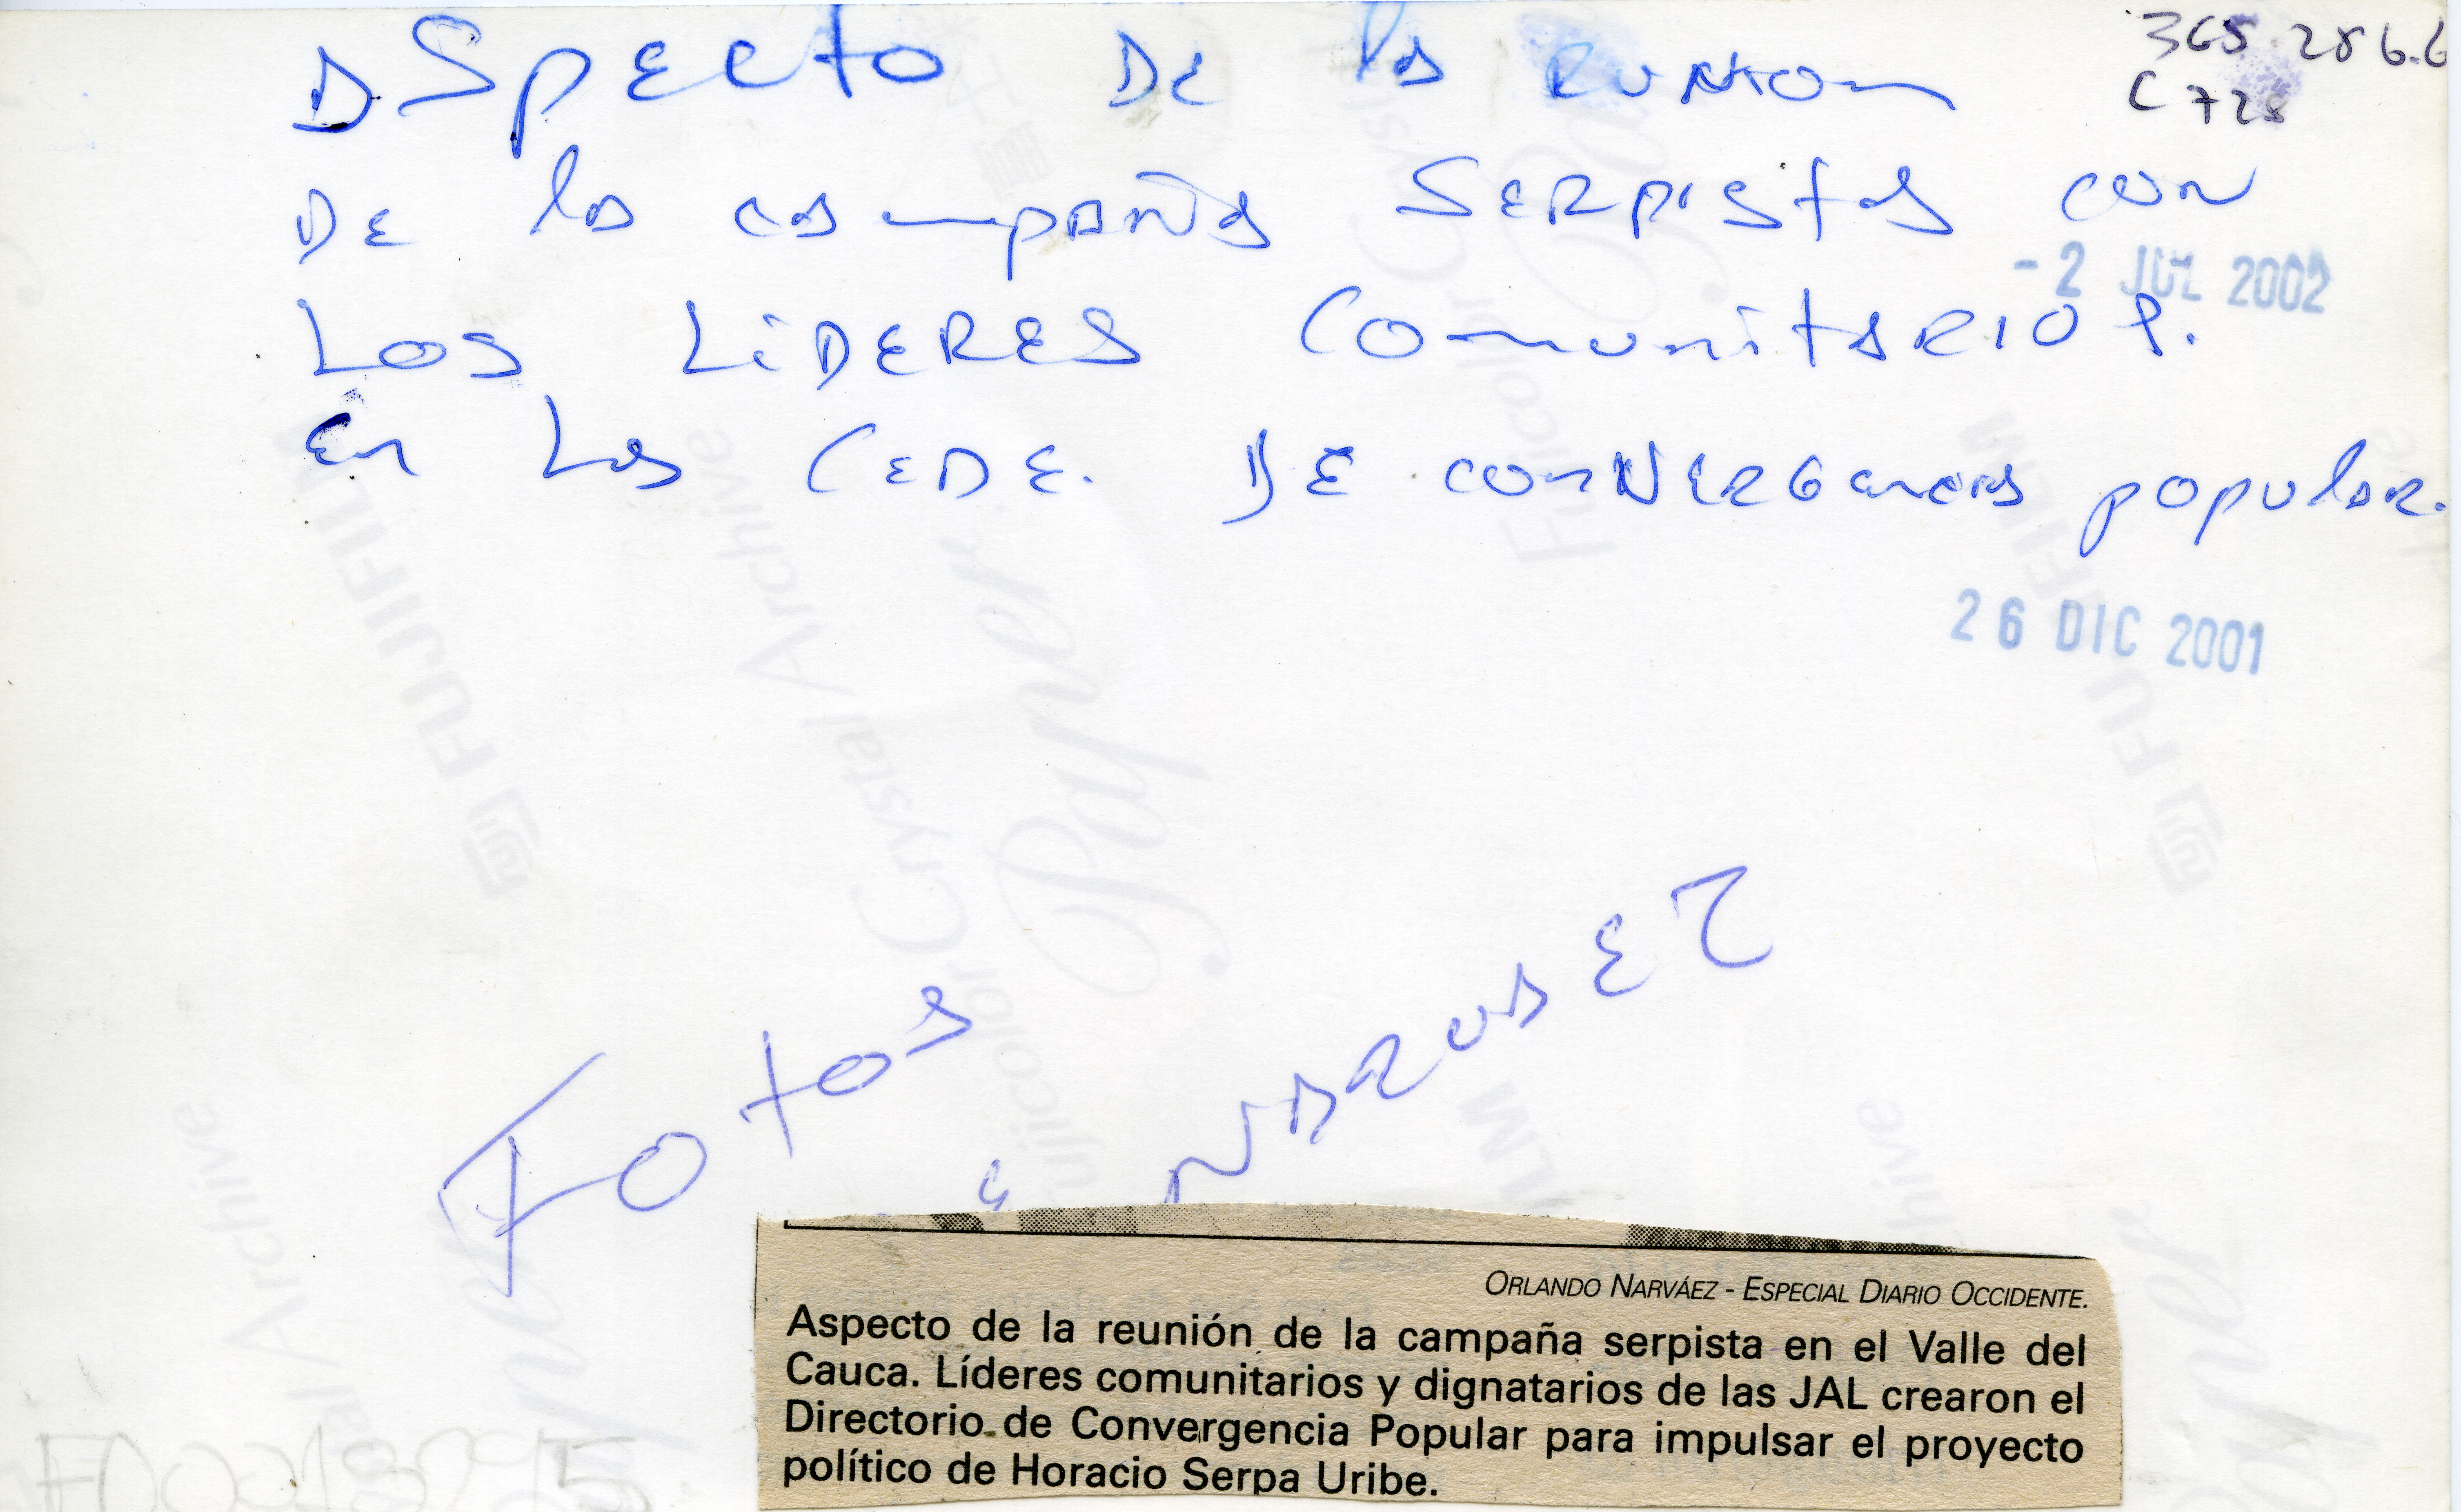 365 286.6
C728
ASpecto DE la RUNION
DE la campaña SERPISTAS con
- 2 JUL 2002
Los LíDERES ComunitARIOS.
En Las CEDE. DE conVERGencias popular.
26 DIC 2001
Fotos
NARVAEZ
ORLANDO NARVÁEZ - ESPECIAL DIARIO OCCIDENTE.
Aspecto de la reunión de la campaña serpista en el Valle del
Cauca. Líderes comunitarios y dignatarios de las JAL crearon el
Directorio de Convergencia Popular para impulsar el proyecto
político de Horacio Serpa Uribe.
FUJIFILM
Fujicolor Crystal Archive